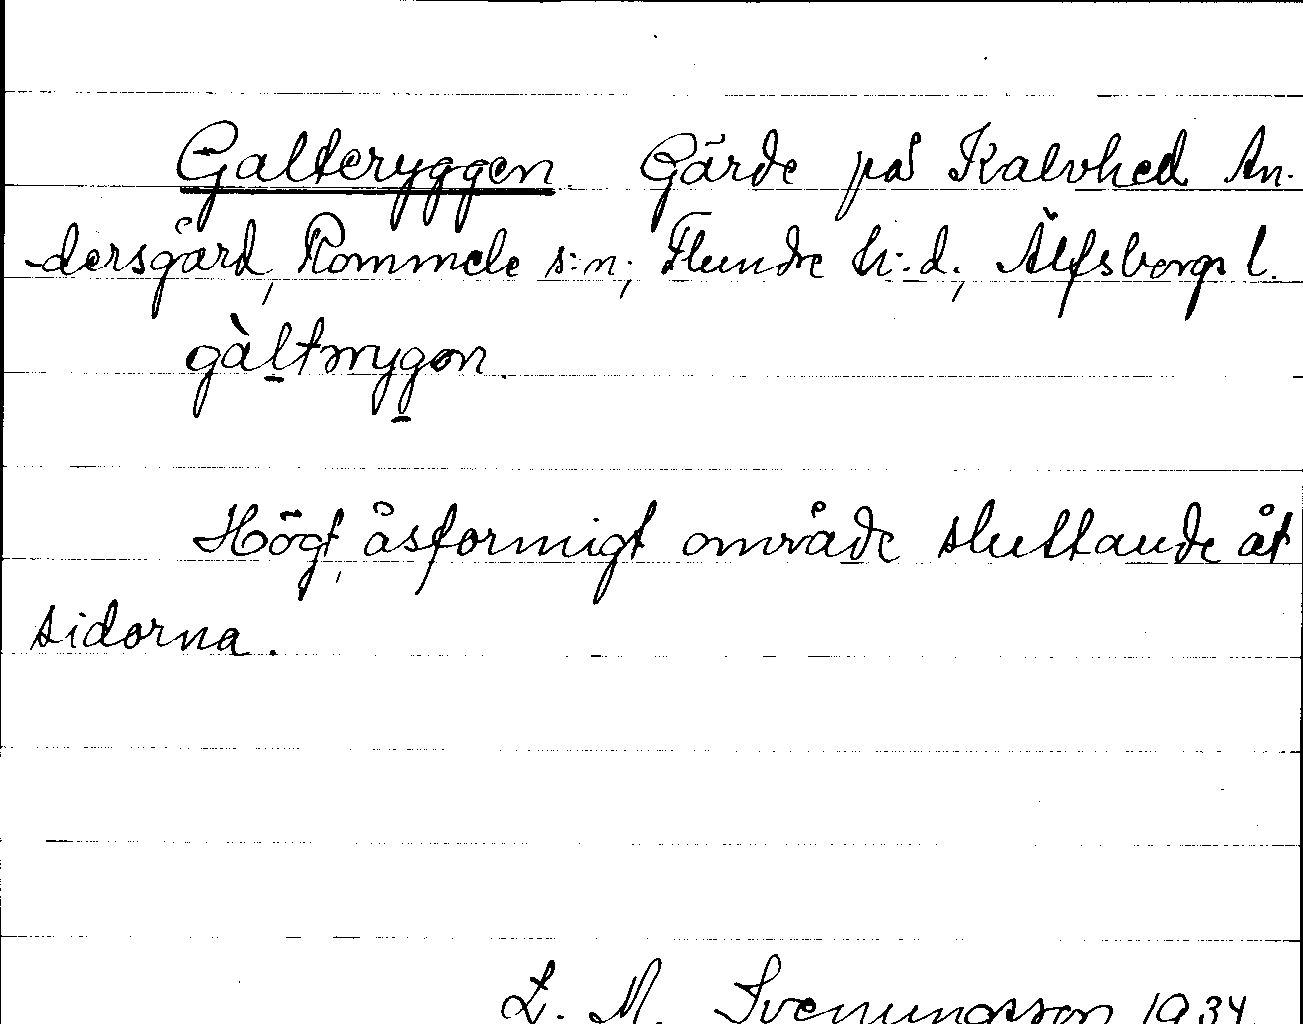 Galteryggen. Gärde på Kalvhed An-
dersgård, Rommele s:n; Flundre h:d; Älfsborgs l.
gàltrrygen.
Högt, åsformigt område sluttande åt
sidorna.
L. M. Svenungsson 1934.